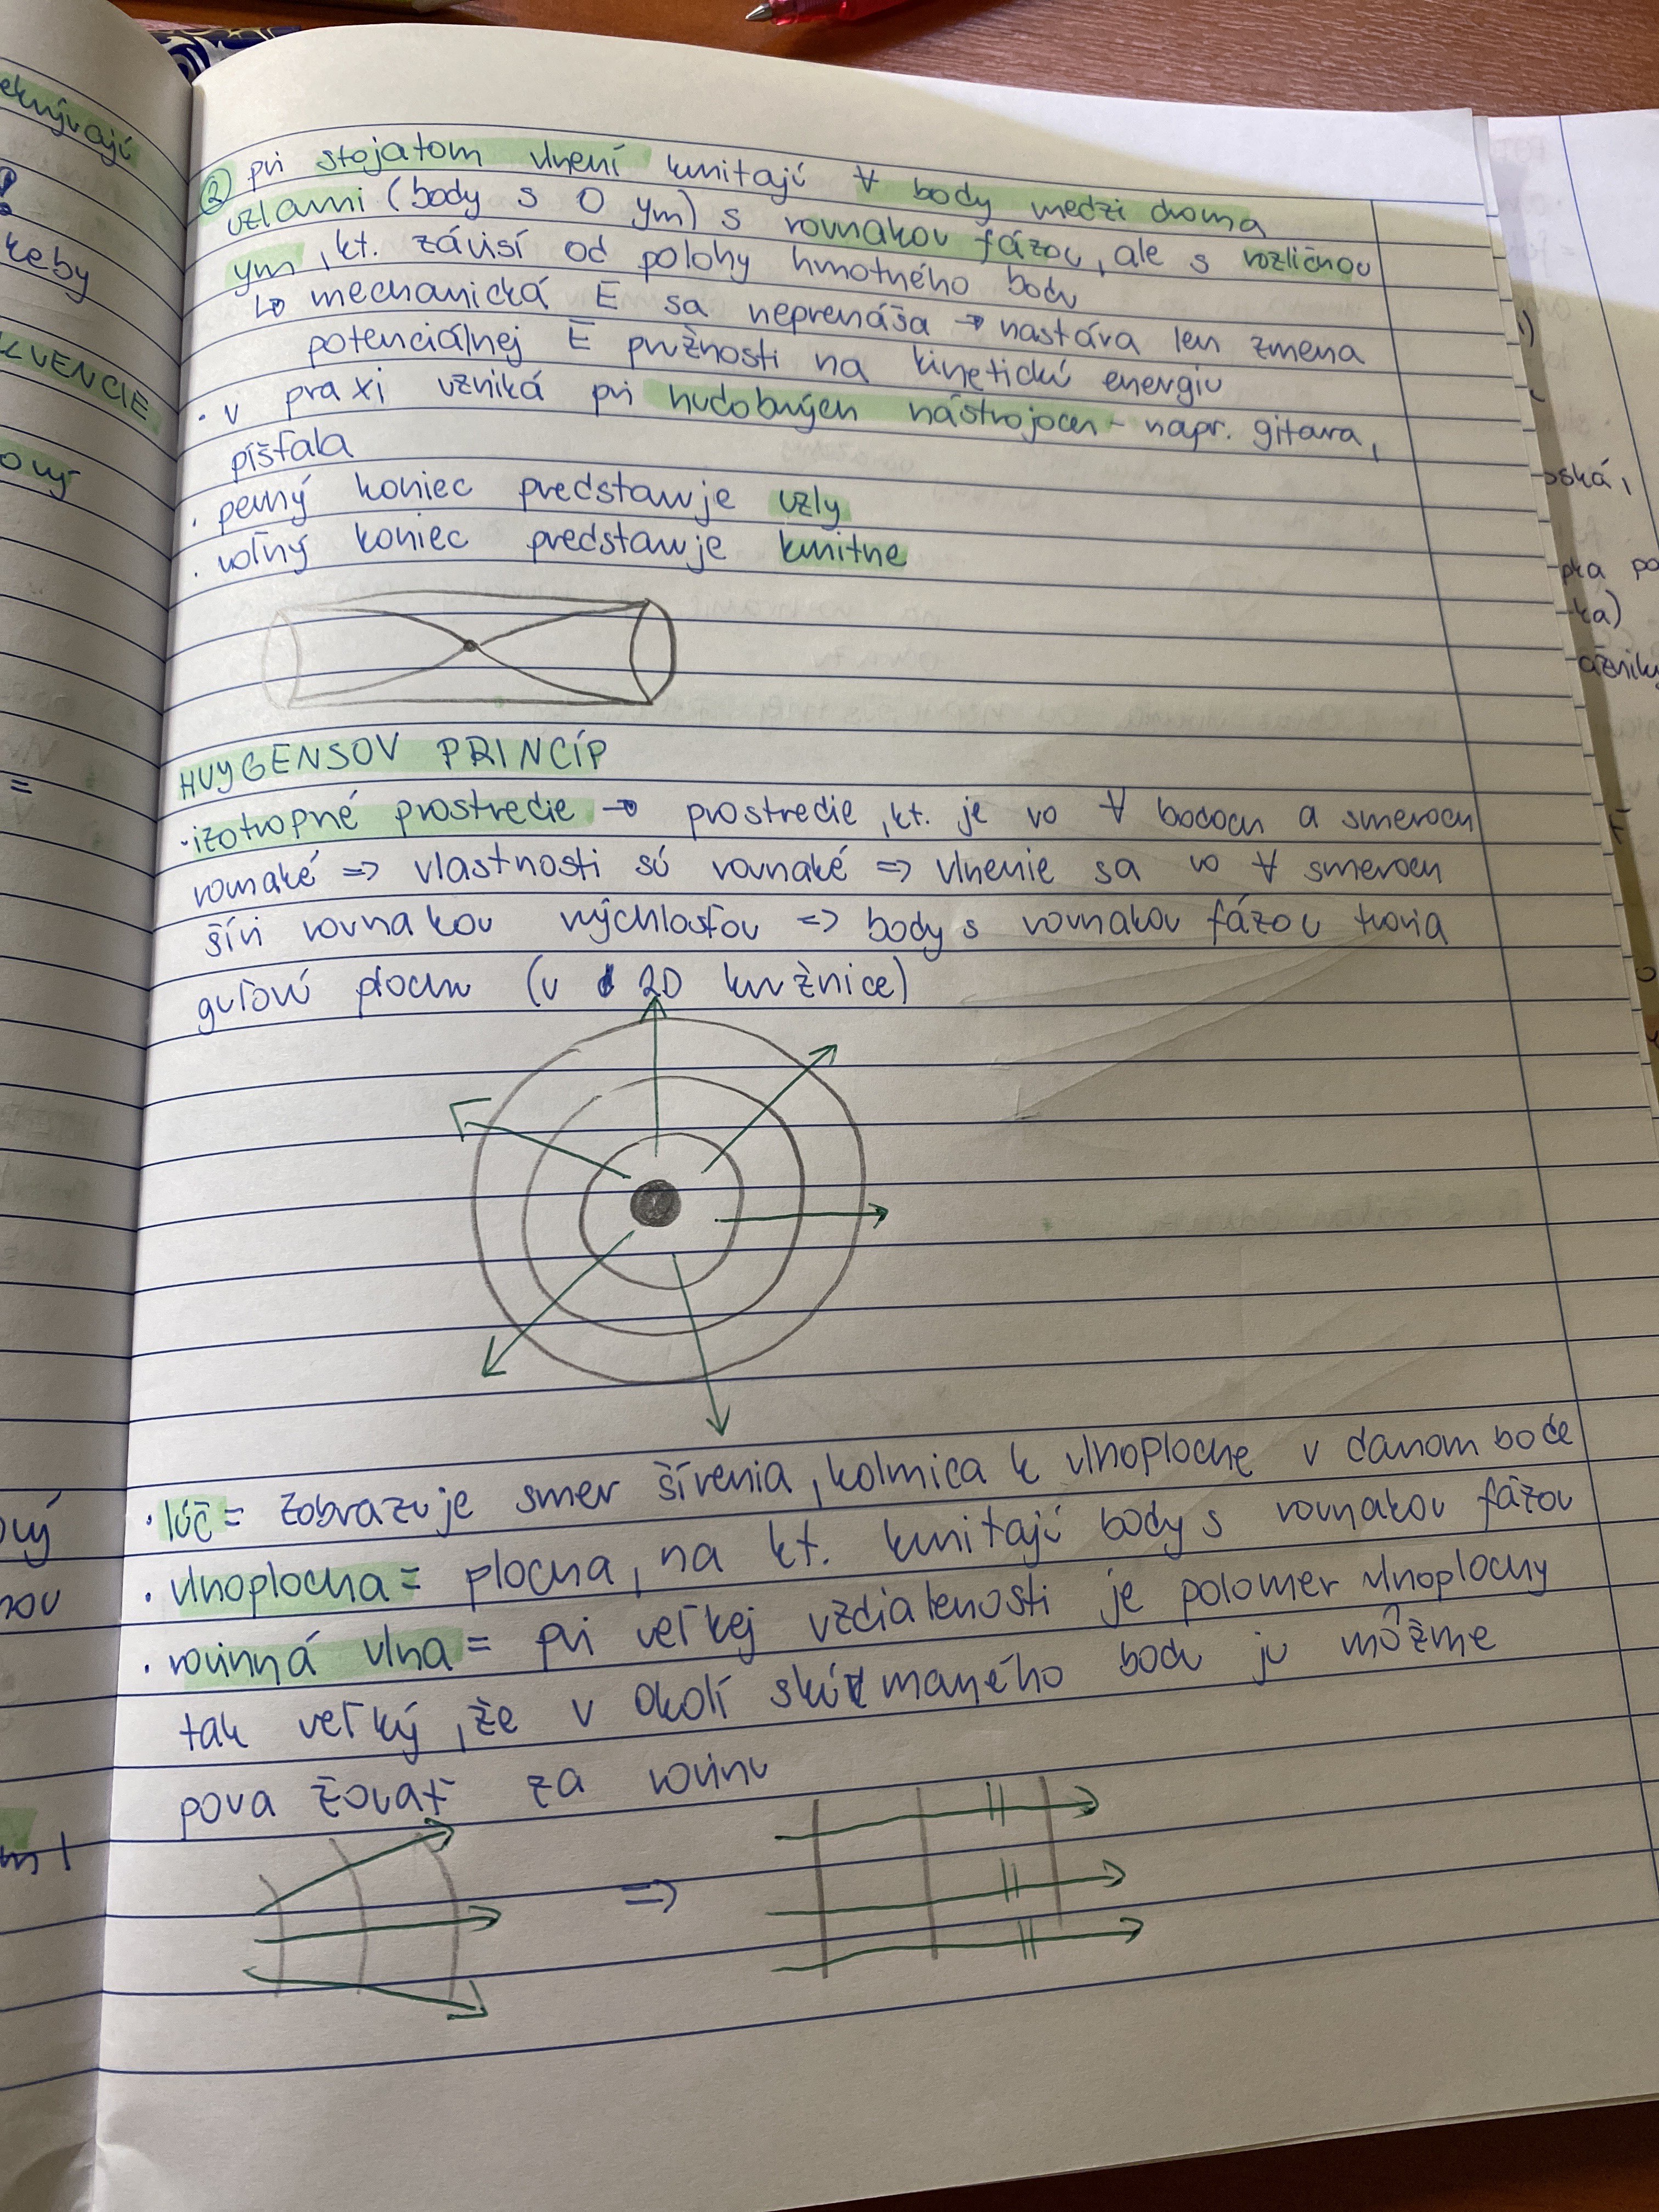 eknývají
keby
KVENCIE
ový
=
ový
nou
m1
② pri stojatom vlnení kmitajú ∀ body medzi dvoma
uzlami (body s 0 ym) s rovnakou fázou, ale s rozličnou
ym, kt. závisí od polohy hmotného bodu
↳ mechanická E sa neprenáša → nastáva len zmena
potenciálnej E pružnosti na kinetickú energiu
· v praxi vzniká pri hudobných nástrojoch - napr. gitara,
píšťala
· pevný koniec predstavuje uzly
· voľný koniec predstavuje kmitne
HUYGENSOV PRINCÍP
· izotropné prostredie → prostredie, kt. je vo ∀ bodoch a smeroch
rovnaké => vlastnosti sú rovnaké => vlnenie sa vo ∀ smeroch
šíri rovnakou rýchlosťou => body s rovnakou fázou tvoria
guľovú plochu (v 2D kružnice)
· lúč = zobrazuje smer šírenia, kolmica k vlnoploche v danom bode
· vlnoplocha = plocha, na kt. kmitajú body s rovnakou fázou
· rovinná vlna = pri veľkej vzdialenosti je polomer vlnoplochy
tak veľký, že v okolí skúmaného bodu ju môžme
považovať za rovinu
=>
ská,
pka po
ká)